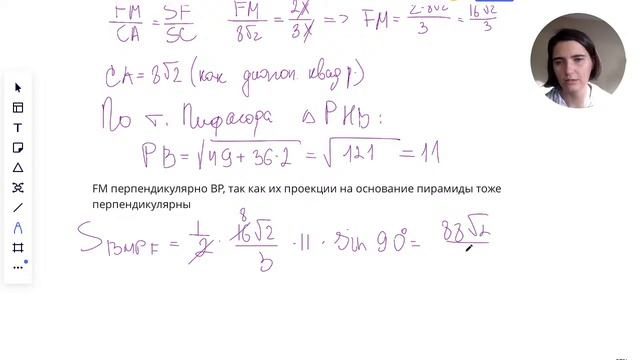 FM/CA = SF/SC FM/8√2 = 2x/3x => FM = 2·8√2/3 = 16√2/3
CA = 8√2 (как диагон. квадр.)
По т. Пифагора △ PHB:
PB = √49 + 36·2 = √121 = 11
FM перпендикулярно BP, так как их проекции на основание пирамиды тоже
перпендикулярны
S BMPF = 1/2 · 16√2/3 · 11 · sin 90° = 88√2
8
T
A